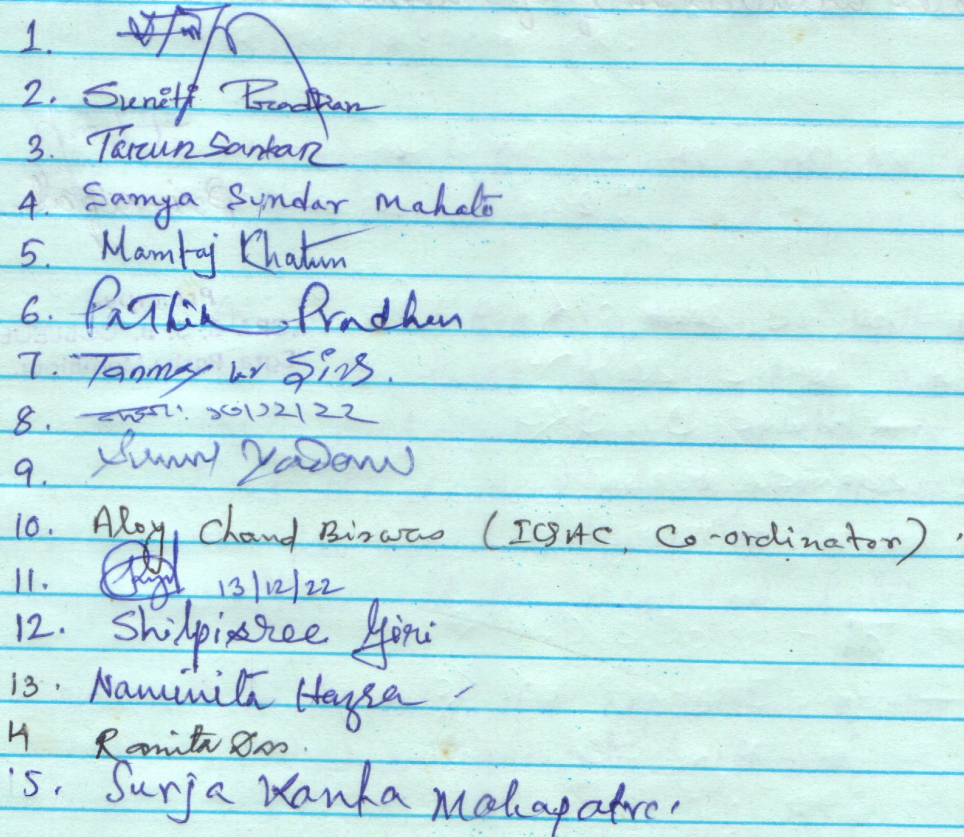 1.
2. Suniti Pradhan
3. Tarun Santar
4. Samya Sundar Mahato
5. Mamtaj Khatun
6. Pathik Pradhan
7. Tanmay kr
8.
9. Sunil Yadav
10. Aloy Chand Biswas (IQAC, Co-ordinator).
11. 13/12/22
12. Shilpisree Giri
13. Namita Hazra
14 Ramita Das.
15. Surja Kanta Mahapatra.